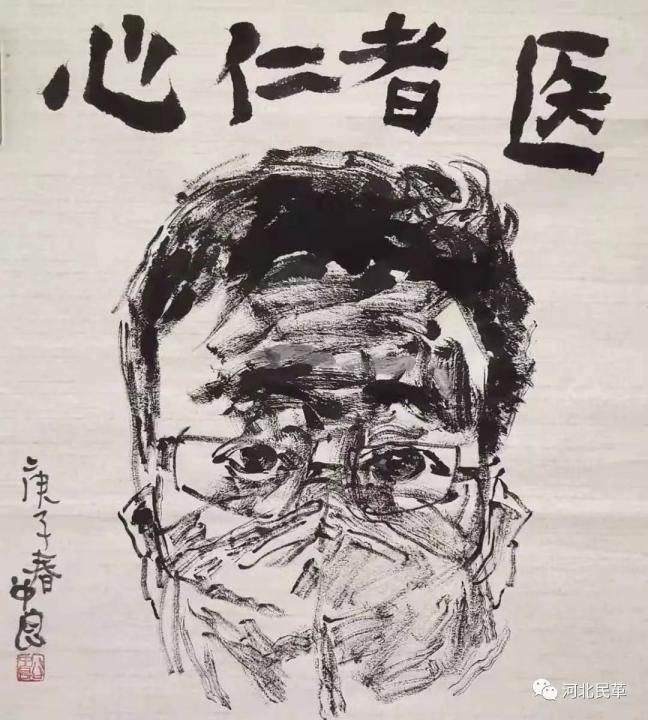 医者仁心
庚子春
河北民革